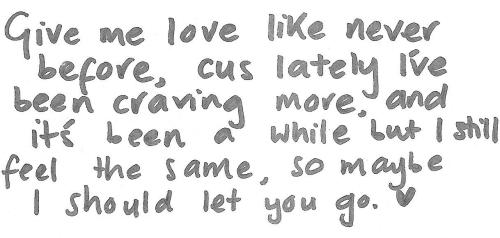 Give me love like never
before, cus lately I've
been craving more, and
it's been a while but I still
feel the same, so maybe
I should let you go. ♥